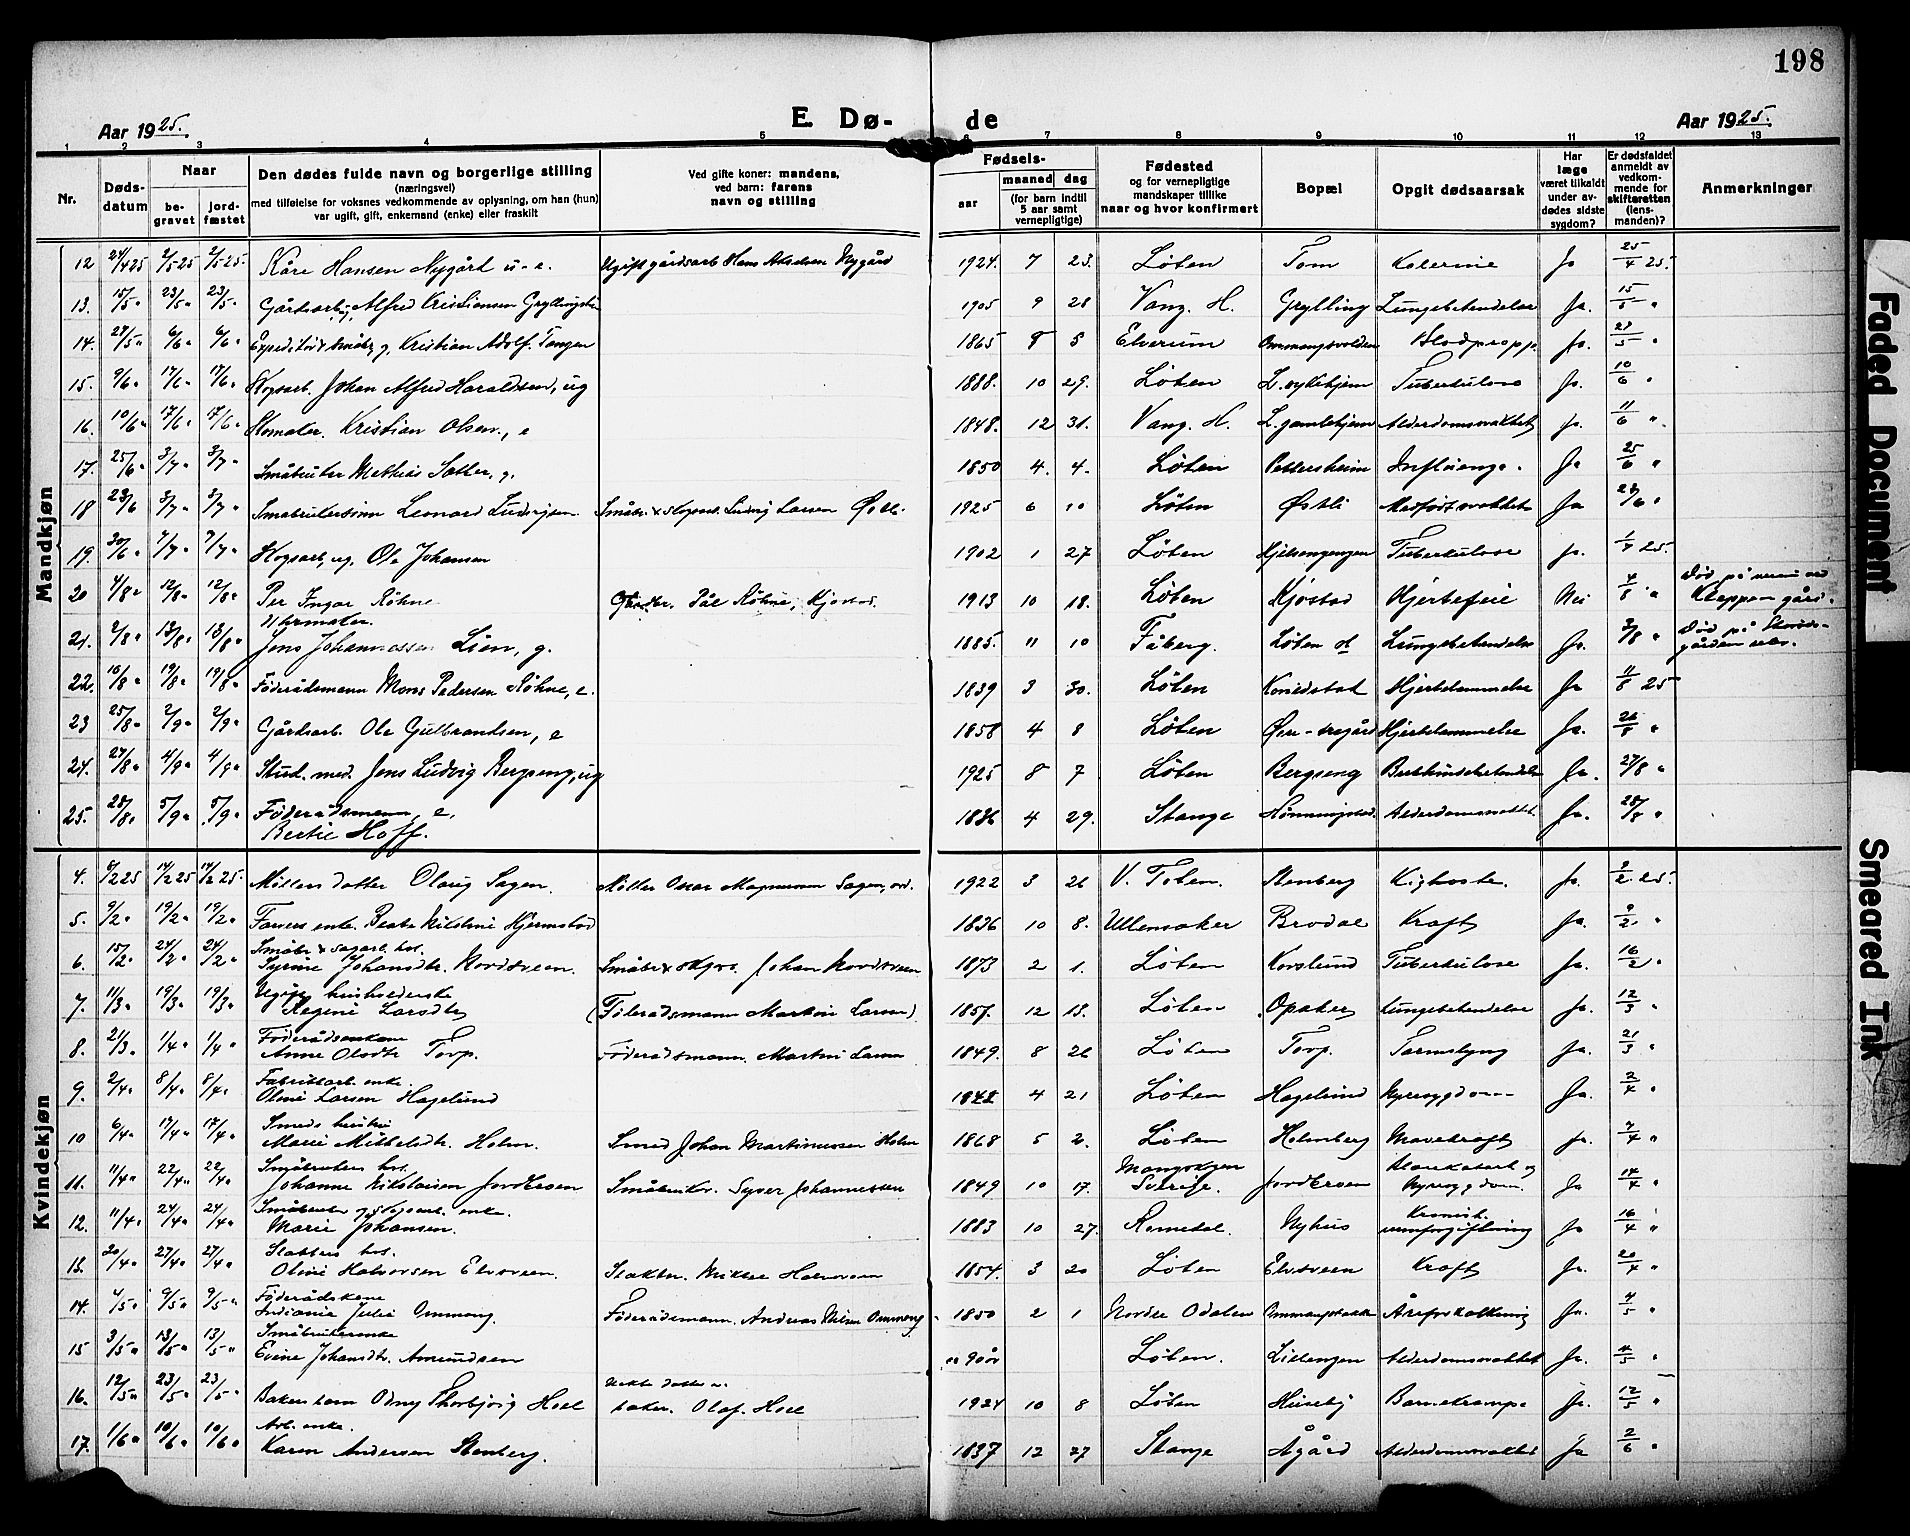 198
Aar 1925.
E. Dø-
de
Aar 1925.
1 2 3 4 5 6 7 8 9 10 11 12 13
Nr.
Døds-
datum
Naar
be-
gravet
jord-
fæstet
Den dødes fulde navn og borgerlige stilling
(næringsvei)
med tilføielse for voksnes vedkommende av oplysning, om han (hun)
var ugift, gift, enkemand (enke) eller fraskilt
Ved gifte koner: mandens,
ved barn: farens
navn og stilling
Fødsels-
aar
maaned
dag
(for barn indtil
5 aar samt
vernepligtige)
Fødested
og for vernepligtige
mandskaper tillike
naar og hvor konfirmert
Bopæl
Opgit dødsaarsak
Har
læge
været tilkaldt
under av-
dødes sidste
sygdom?
Er dødsfaldet
anmeldt av
vedkom-
mende for
skifteretten
(lens-
manden)?
Anmerkninger
Mandkjøn
12 24/4 25 2/5 25 2/5 25. Kåre Hansen Nygård u. e. Ugift gårdsarb Hans Nygård 1924. 7 23. Løten Tom Kolerine Ja 25/4 25.
13. 15/5 " 23/5 " 23/5 " Gårdsarb. Alfred Kristiansen 1905 9 28 Vang. H. Grylling Lungebetendelse Ja. 15/5 "
14. 6/6 " 6/6 " Kristian Adolf Tangen 1865 8 5 Elverum Blodpropp. Ja.
15. 9/6 " 17/6 " 17/6 " Skogsarb. Johan Alfred Haraldsen, ug 1888. 10 29. Løten L. sykehjem Tuberkulose Ja. 10/6 "
16. 10/6 " 17/6 " 17/6 " Skomaker. Kristian Olsen, e 1848. 12 31. Vang. H. L. gamlehjem Alderdomssvakhet ja. 11/6 "
17. 25/6 " 3/7 " 3/7 " Småbruker Mathias Sætter, g. 1850 4. 4. Løten Pettersheim Influenza. Ja 25/6 "
18 23/6 3/7 " 3/7 " Småbrukersønn Leonard Ludvigsen. Småbr. & skogsarb. Ludvig Larsen 1925 6 10 Løten Østli Medfødt svakhet Ja "
19. 30/6 " 7/7 " 7/7 " Skogsarb, ug. Ole Johansen 1902 1 27 Løten Tuberkulose Ja. 1/7 25.
20 4/8 " 12/8 " 12/8 " Per Ingar Røhne Gårdbr. Pål Røhne, Kjøstad. 1913 10 18. Løten Kjøstad Hjertefeil Nei 4/8 " Død på
Kleppen gård.
21. 2/8 " 13/8 " 13/8 " Urmaker.
Jens Johannessen Lien, g. 1885. 11 10 Fåberg. Løten st Lungebetendelse Ja. 3/8 " Død på
gården
22. 10/8 " 19/8 " 19/8 " Føderådsmann Mons Pedersen Røhne, e. 1839 3 30. Løten Hjertelammelse Ja 11/8 25
23 25/8 " 2/9 " 2/9 " Gårdsarb. Ole Gulbrandsen, e 1858 4 8 Løten Hjertelammelse Ja. 26/8 "
24. 27/8 " 4/9 " 4/9 " Stud. med. Jens Ludvig Bergseng, ug 1925 8 7 Løten Bergseng Ja. 27/8 "
25. 28/8 " 5/9 " 5/9 " Føderådsmann, e.
Bertil Hoff. 1836 4 29. Stange Hønningstad. Alderdomssvakhet. Ja. 28/8 "
Kvindekjøn
4. 8/2 25 14/2 25 14/2 25. Møllers datter Olaug Sagen. Møller Oscar Sagen 1922 3 26 V. Toten. Stenberg Kighoste. ja. 9/2 25.
5. 9/2 " 19/2 " 19/2 " Farvers enke. Beate Hjermstad 1836 10 8. Ullensaker Brodal Kraft Ja. 9/2 "
6. 15/2 " 24/2 " 24/2 " Småbr & sagarb. hus.
Syrine Johansdtr. Nordsveen. Småbr & skogs. Johan Nordsveen 1873 2 1. Løten Korslund Tuberkulose Ja. 16/2 "
7. 11/3 " 19/3 " 19/3 " Ugift husholderske
Regine Larsdtr (Føderådsmann Martin Larsen) 1857. 12 13. Løten Opaker Lungebetendelse Ja. 12/3 "
8. 21/3. 1/4 " 1/4 " Føderådsenkone
Anne Olsdtr Torp. Føderådsmann. Martin Larsen 1849. 8 26 Løten Torp. Tarmslyng Ja. 21/3 "
9. 2/4 " 8/4 " 8/4 " Fabrikkarb. enke.
Oline Larsen Hagelund 4 21 Løten Hagelund Nyresygdom Ja. 2/4 "
10 6/4 " 17/4 " 17/4 " Smeds hustru
Marie Mikkelsdtr. Holm. Smed Johan Martinussen Holm 1868 5 2. Løten Holmberg Mavekraft ja. 7/4 "
11. 11/4 " 22/4 " 22/4 " Småbrukers hus.
Johanne Nikolaisen Jordbroen Småbruker. Syver Johannessen 1849 10 17. Mangskogen
Sverige. Jordbroen
Nyresygdom. Ja 14/4 "
12. 11/4 " 24/4 " 24/4 " Småbruker og Skogsarb. enke.
Marie Johansen. 1883 10 27. Romedal Nyhus Kronisk.
urinforgiftning Ja 16/4 "
13. 20/4 " 27/4 " 27/4 " Slakters hus.
Oline Halvorsen Elvsveen. Slakter. Mikkel Halvorsen 1854. 3 20 Løten Elvsveen Kraft Ja. 20/4 "
14. 4/5 " 9/5 " 9/5 " Føderådskone
Indiania Julie Ommang. Føderådsmann. Andreas Nilsen Ommang 1850 2 1 Nordre Odalen Ommangsbakke Åreforkalkning Ja. 4/5 "
15 3/5 " 13/5 " 13/5 " Småbrukerenke
Eline Johansdtr. Amundsen ca 90 år Løten. Lillengen Alderdomssvakhet Ja. 4/5 "
16. 12/5 " 23/5 " 23/5 " Bakers barn Odny Thorbjørg Hoel ekte datter av
baker. Olaf. Hoel 1924 10 8 Løten Huseby Barnekrampe Ja. 12/5 "
17. 1/6 " 10/6 " 10/6 " Arb. enke.
Karen Andersen Stenberg. 1837 12 27 Stange Ågård Alderdomssvakhet Ja 2/6 "
Faded Document
Smeared Ink